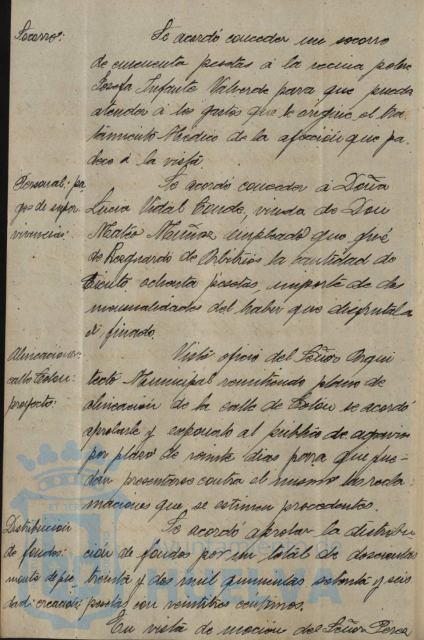 Socorro:
Se acordó conceder un socorro
de cincuenta pesetas á la vecina pobre
Josefa Infante Valverde para que pueda
atender á los gastos que le origine el tra-
tamiento Médico de la afección que pa-
dece á la vista.
Personal: pa-
gas de super-
vivencias:
Se acordó conceder á Doña
Lucia Vidal Conde, viuda de Don
Mateo Muñoz empleado que fué
de Resguardo de Arbitrios la cantidad de
ciento ochenta pesetas, importe de dos
mensualidades del haber que disfrutaba
el finado.
Alineaciones:
calle Colon:
proyecto:
Visto oficio del Señor Arqui-
tecto Municipal remitiendo plano de
alineación de la calle de Colon se acordó
aprobarle y exponerlo al público de agravios
por plazo de veinte dias para que pue-
dan presentarse contra el mismo las recla-
maciones que se estimen procedentes.
Distribucion
de fondos:
Se acordó aprobar la distribu-
ción de fondos por un total de doscientas
treinta y dos mil quinientas setenta y seis
pesetas con veintitres centimos.
En vista de mocion del Señor Perez
HUELVA